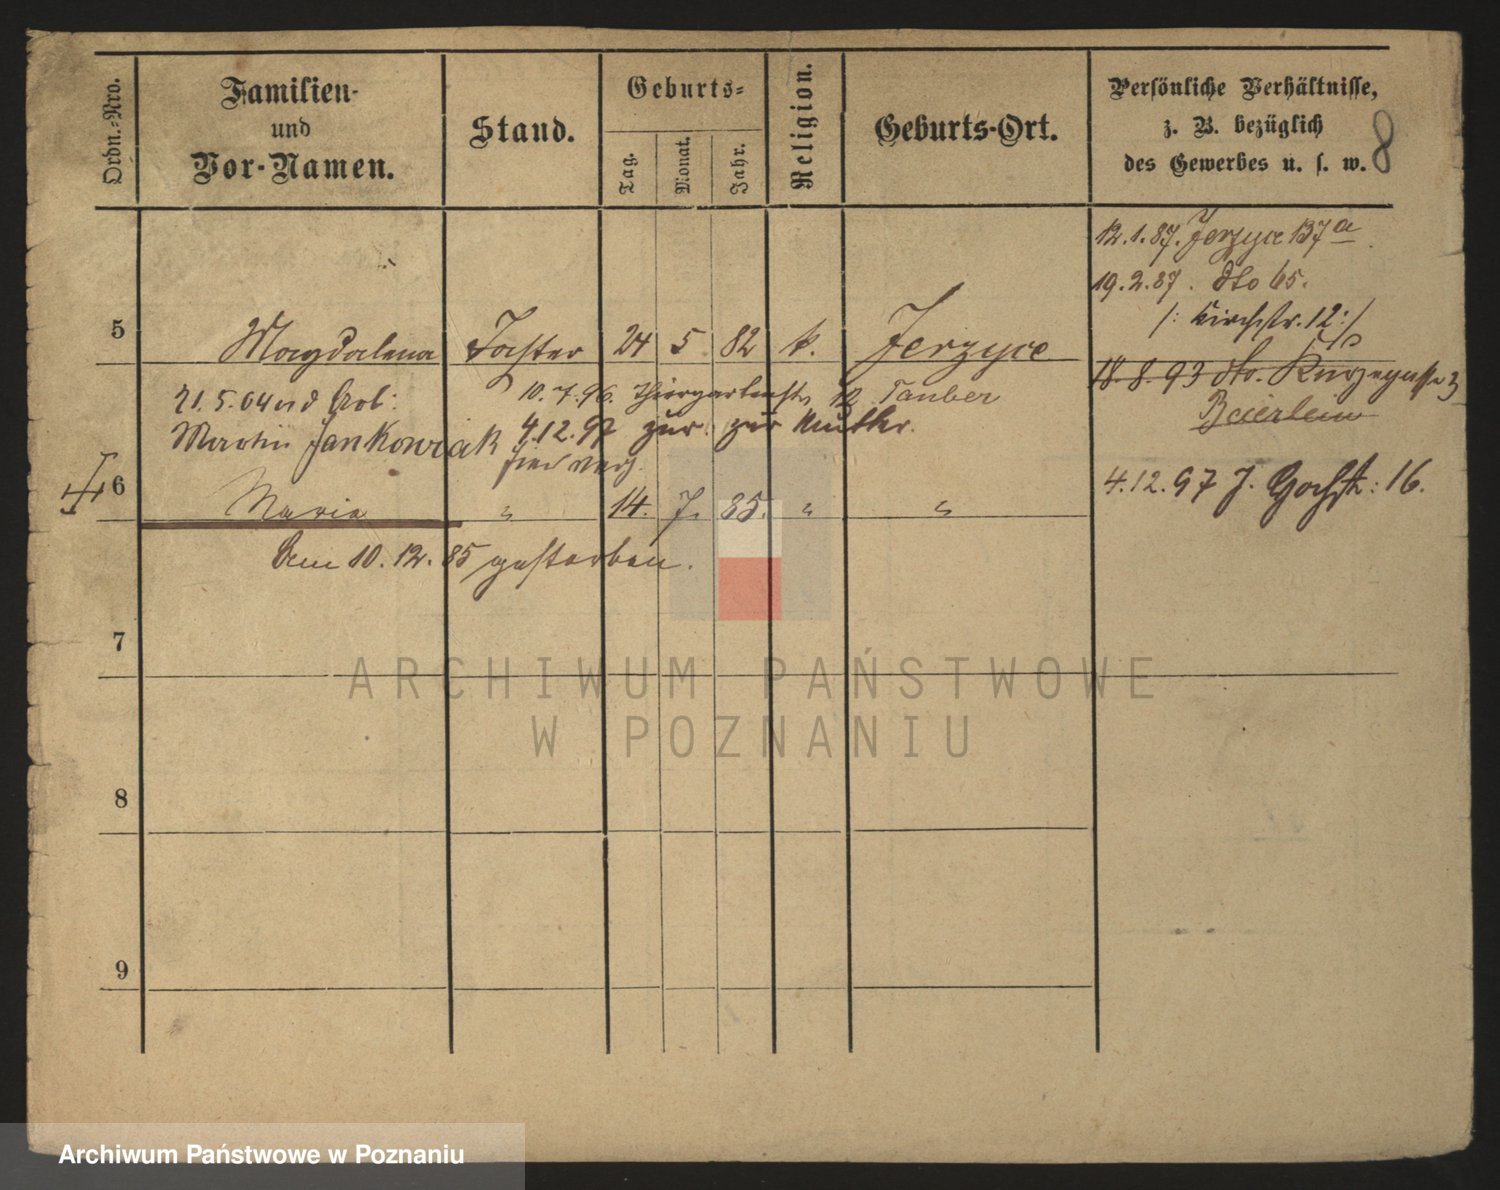 Ordn.-Nro.
Familien-
und
Vor-Namen.
Stand.
Geburts-
Tag.
Monat.
Jahr.
Religion.
Geburts-Ort.
Persönliche Verhältnisse,
z. B. bezüglich
des Gewerbes u. s. w.
8
12.1.87. Jerzyce 137a
19.2.87. dto 65.
/: Kirchstr. 12 :/
5 Magdalena Tochter 24 5 82 k. Jerzyce
18.8.93 dto.
21.5.04
10.7.96. Thiergartenstr. 12 Tauber
Martin Jankowiak
4.12.97 zur. zur Mutter.
4.12.97 J. 16.
6 Maria " 14. 7. 85. " "
Am 10.12.85 gestorben.
7
8
9
ARCHIWUM PAŃSTWOWE
W POZNANIU
Archiwum Państwowe w Poznaniu